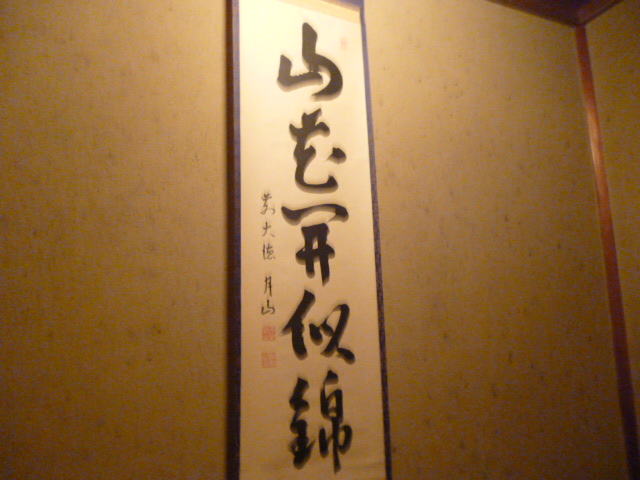 山花開似錦
前大徳 月山